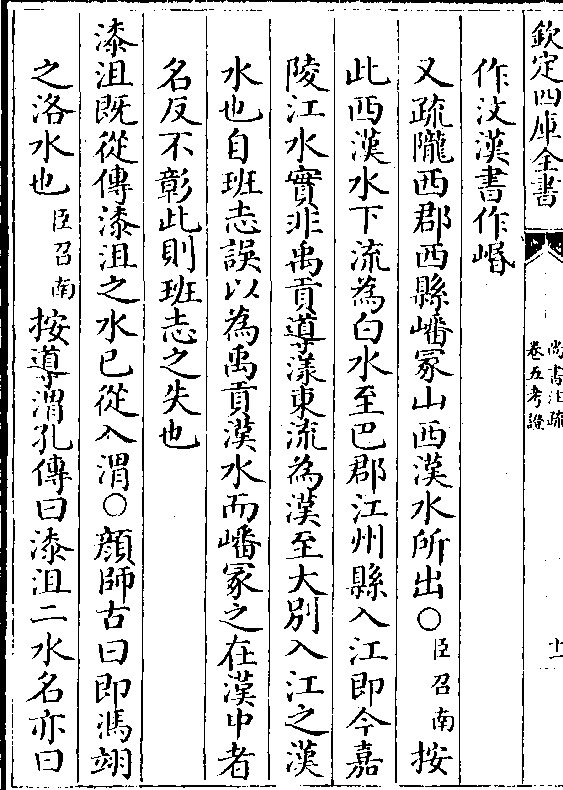 欽定四庫全書
尚書注疏
卷五考證
十一
作汶漢書作㟭
又疏隴西郡西縣嶓冢山西漢水所出○臣召南按
此西漢水下流為白水至巴郡江州縣入江即今嘉
陵江水實非禹貢導漾東流為漢至大別入江之漢
水也自班志誤以為禹貢漢水而嶓冢之在漢中者
名反不彰此則班志之失也
漆沮既從傳漆沮之水已從入渭○顔師古曰即馮翊
之洛水也臣召南按導渭孔傳曰漆沮二水名亦曰